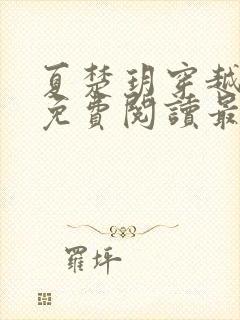 夏楚玥穿越
免費閱讀最
羅坪